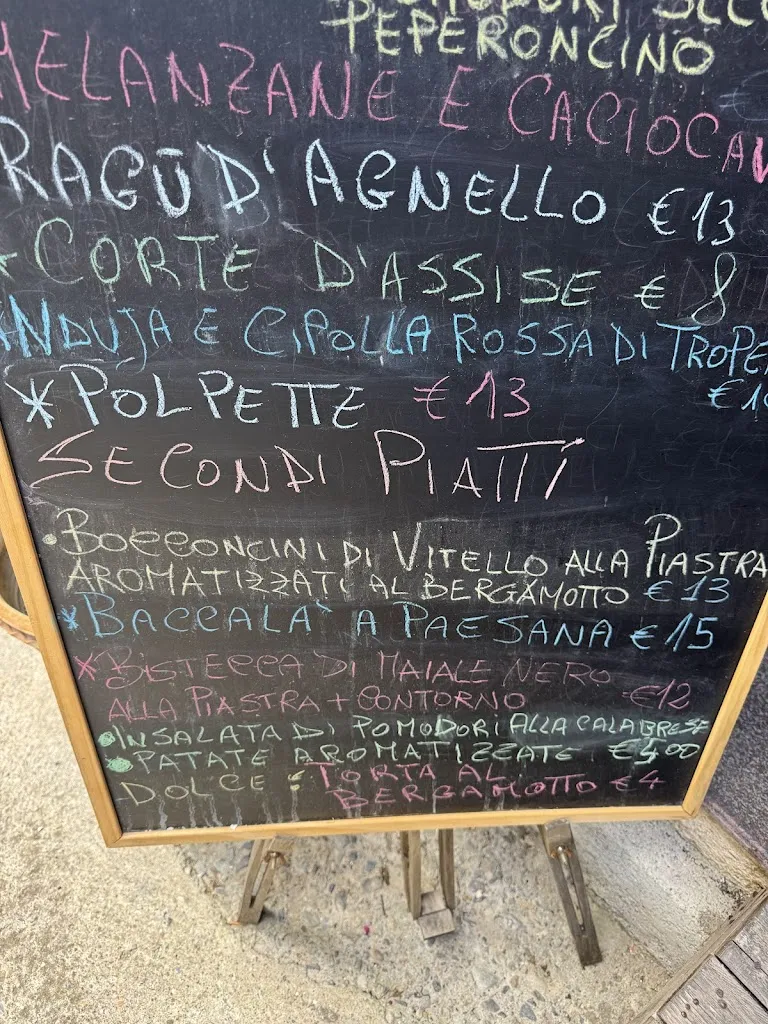 PEPERONCINO
MELANZANE E CACIOCAV
RAGÙ D'AGNELLO €13
*CORTE D'ASSISE €8
NDUJA E CIPOLLA ROSSA DI TROPE
*POLPETTE €13 €10
SECONDI PIATTI
•BOCCONCINI DI VITELLO ALLA PIASTRA
AROMATIZZATI AL BERGAMOTTO €13
*BACCALA' A PAESANA €15
*BISTECCA DI MAIALE NERO
ALLA PIASTRA + CONTORNO €12
•INSALATA DI POMODORI ALLA CALABRESE
•PATATE AROMATIZZATE €4,00
DOLCE: TORTA AL
BERGAMOTTO €4